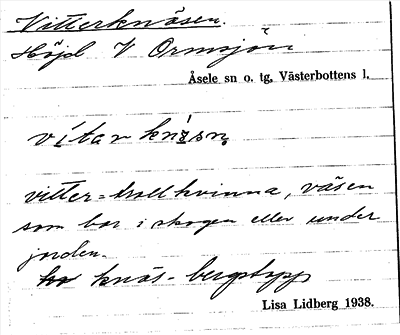 Vitterknösen.
Höjd V Ormsjön
Åsele sn o. tg, Västerbottens l.
vitter = trollkvinna, väsen
som bor i skogen eller under
jorden.
knös = bergstopp
Lisa Lidberg 1938.